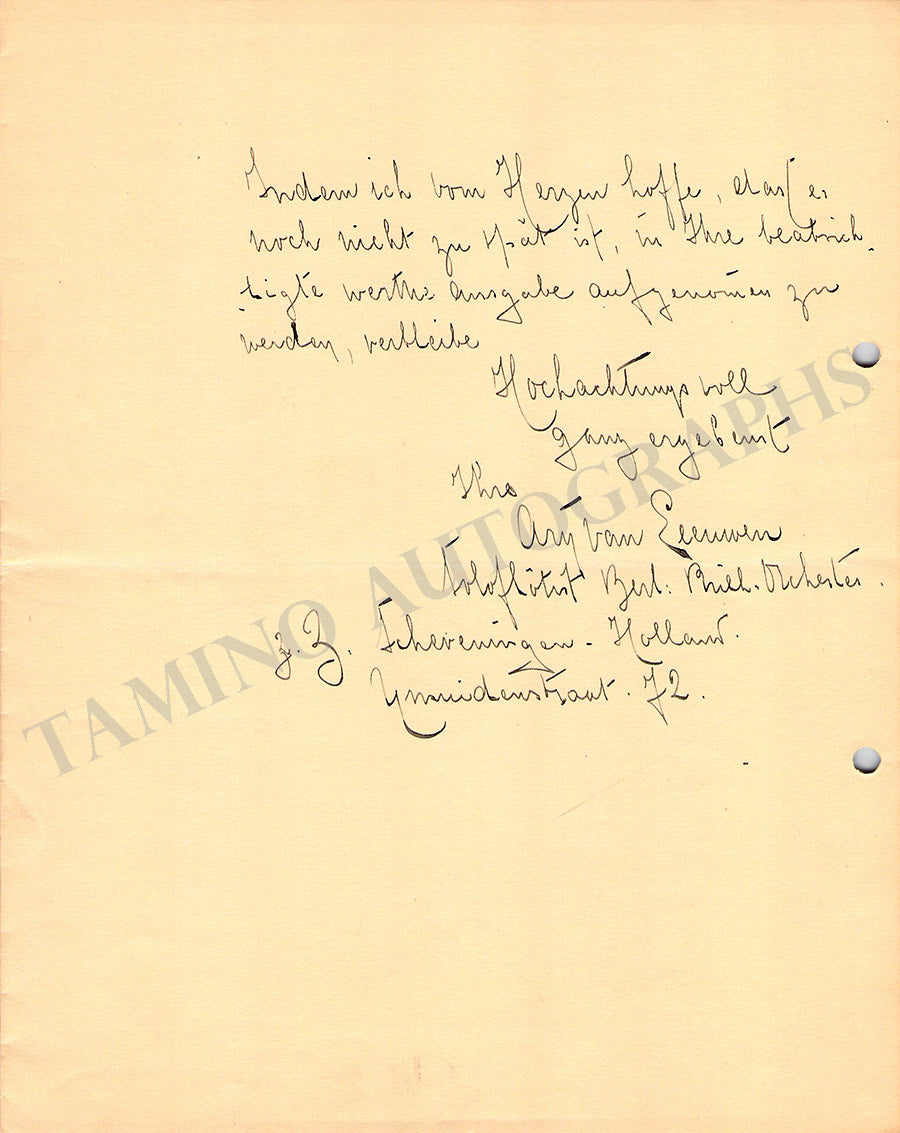 Indem ich vom Herzen hoffe, dass es
noch nicht zu spät ist, in Ihre beabsich-
tigte werthe Ausgabe aufgenomen zu
werden, verbleibe
Hochachtungsvoll
ganz ergebenst
Ihre
Ary van Leeuwen
Soloflötist Berl. Philh. Orchester.
z. Z. Scheveningen - Holland.
Ymuidenstraat. 72.
TAMINO AUTOGRAPHS